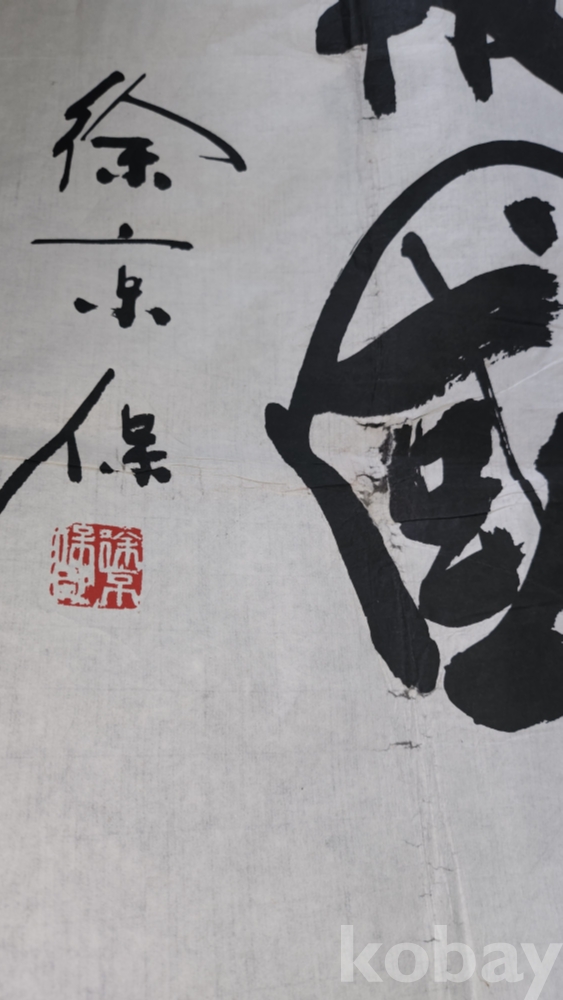 國
徐京保
徐京保印
kobay